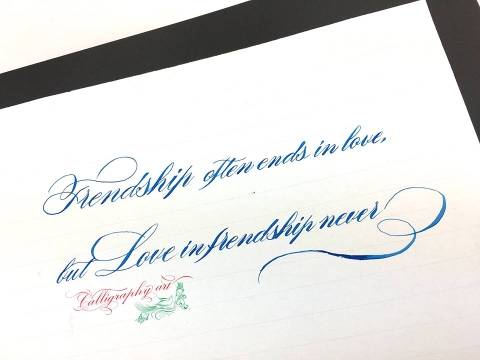 Frendship often ends in love,
but Love in frendship never
Calligraphy art